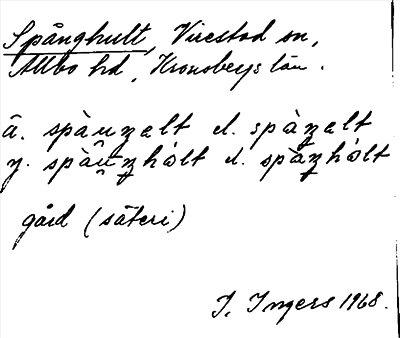 Spånghult, Virestad sn,
Allbo hd, Kronobergs län.
ä. spàuŋalt el. spàŋalt
y. spàuŋhólt el. spàŋhólt
gård (säteri)
I. Ingers 1968.